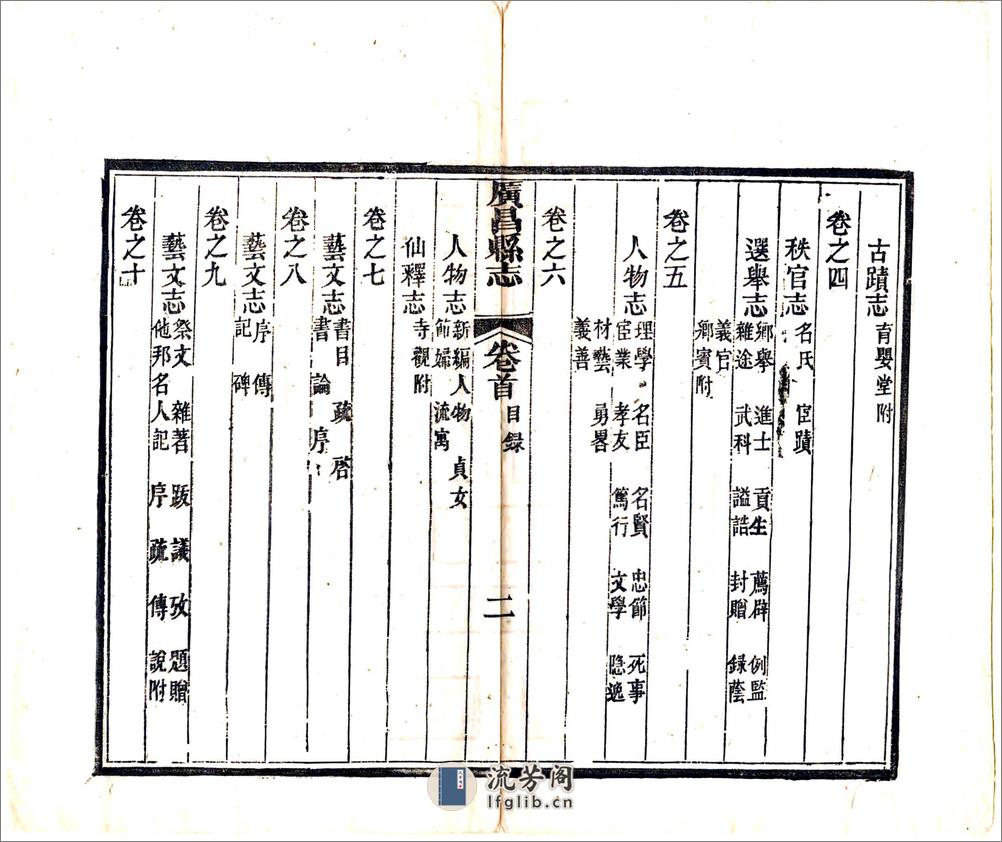 古蹟志 育嬰堂附
卷之四
秩官志 名氏 宦蹟
選舉志 鄉舉 進士 貢生 薦辟 例監
雜途 武科 諡誥 封贈 錄蔭
義官
鄉賓附
卷之五
人物志 理學 名臣 名賢 忠節 死事
宦業 孝友 篤行 文學 隱逸
材藝 勇畧
義善
卷之六
廣昌縣志 卷首 目錄 二
人物志 新編人物 貞女
節婦 流寓
仙釋志 寺觀附
卷之七
藝文志 書目 疏 啓
書 論 序
卷之八
藝文志 序 傳
記 碑
卷之九
藝文志 祭文 雜著 跋 議 攷 題贈
他邦名人記 序 疏 傳 說附
卷之十
流芳阁
lfglib.cn